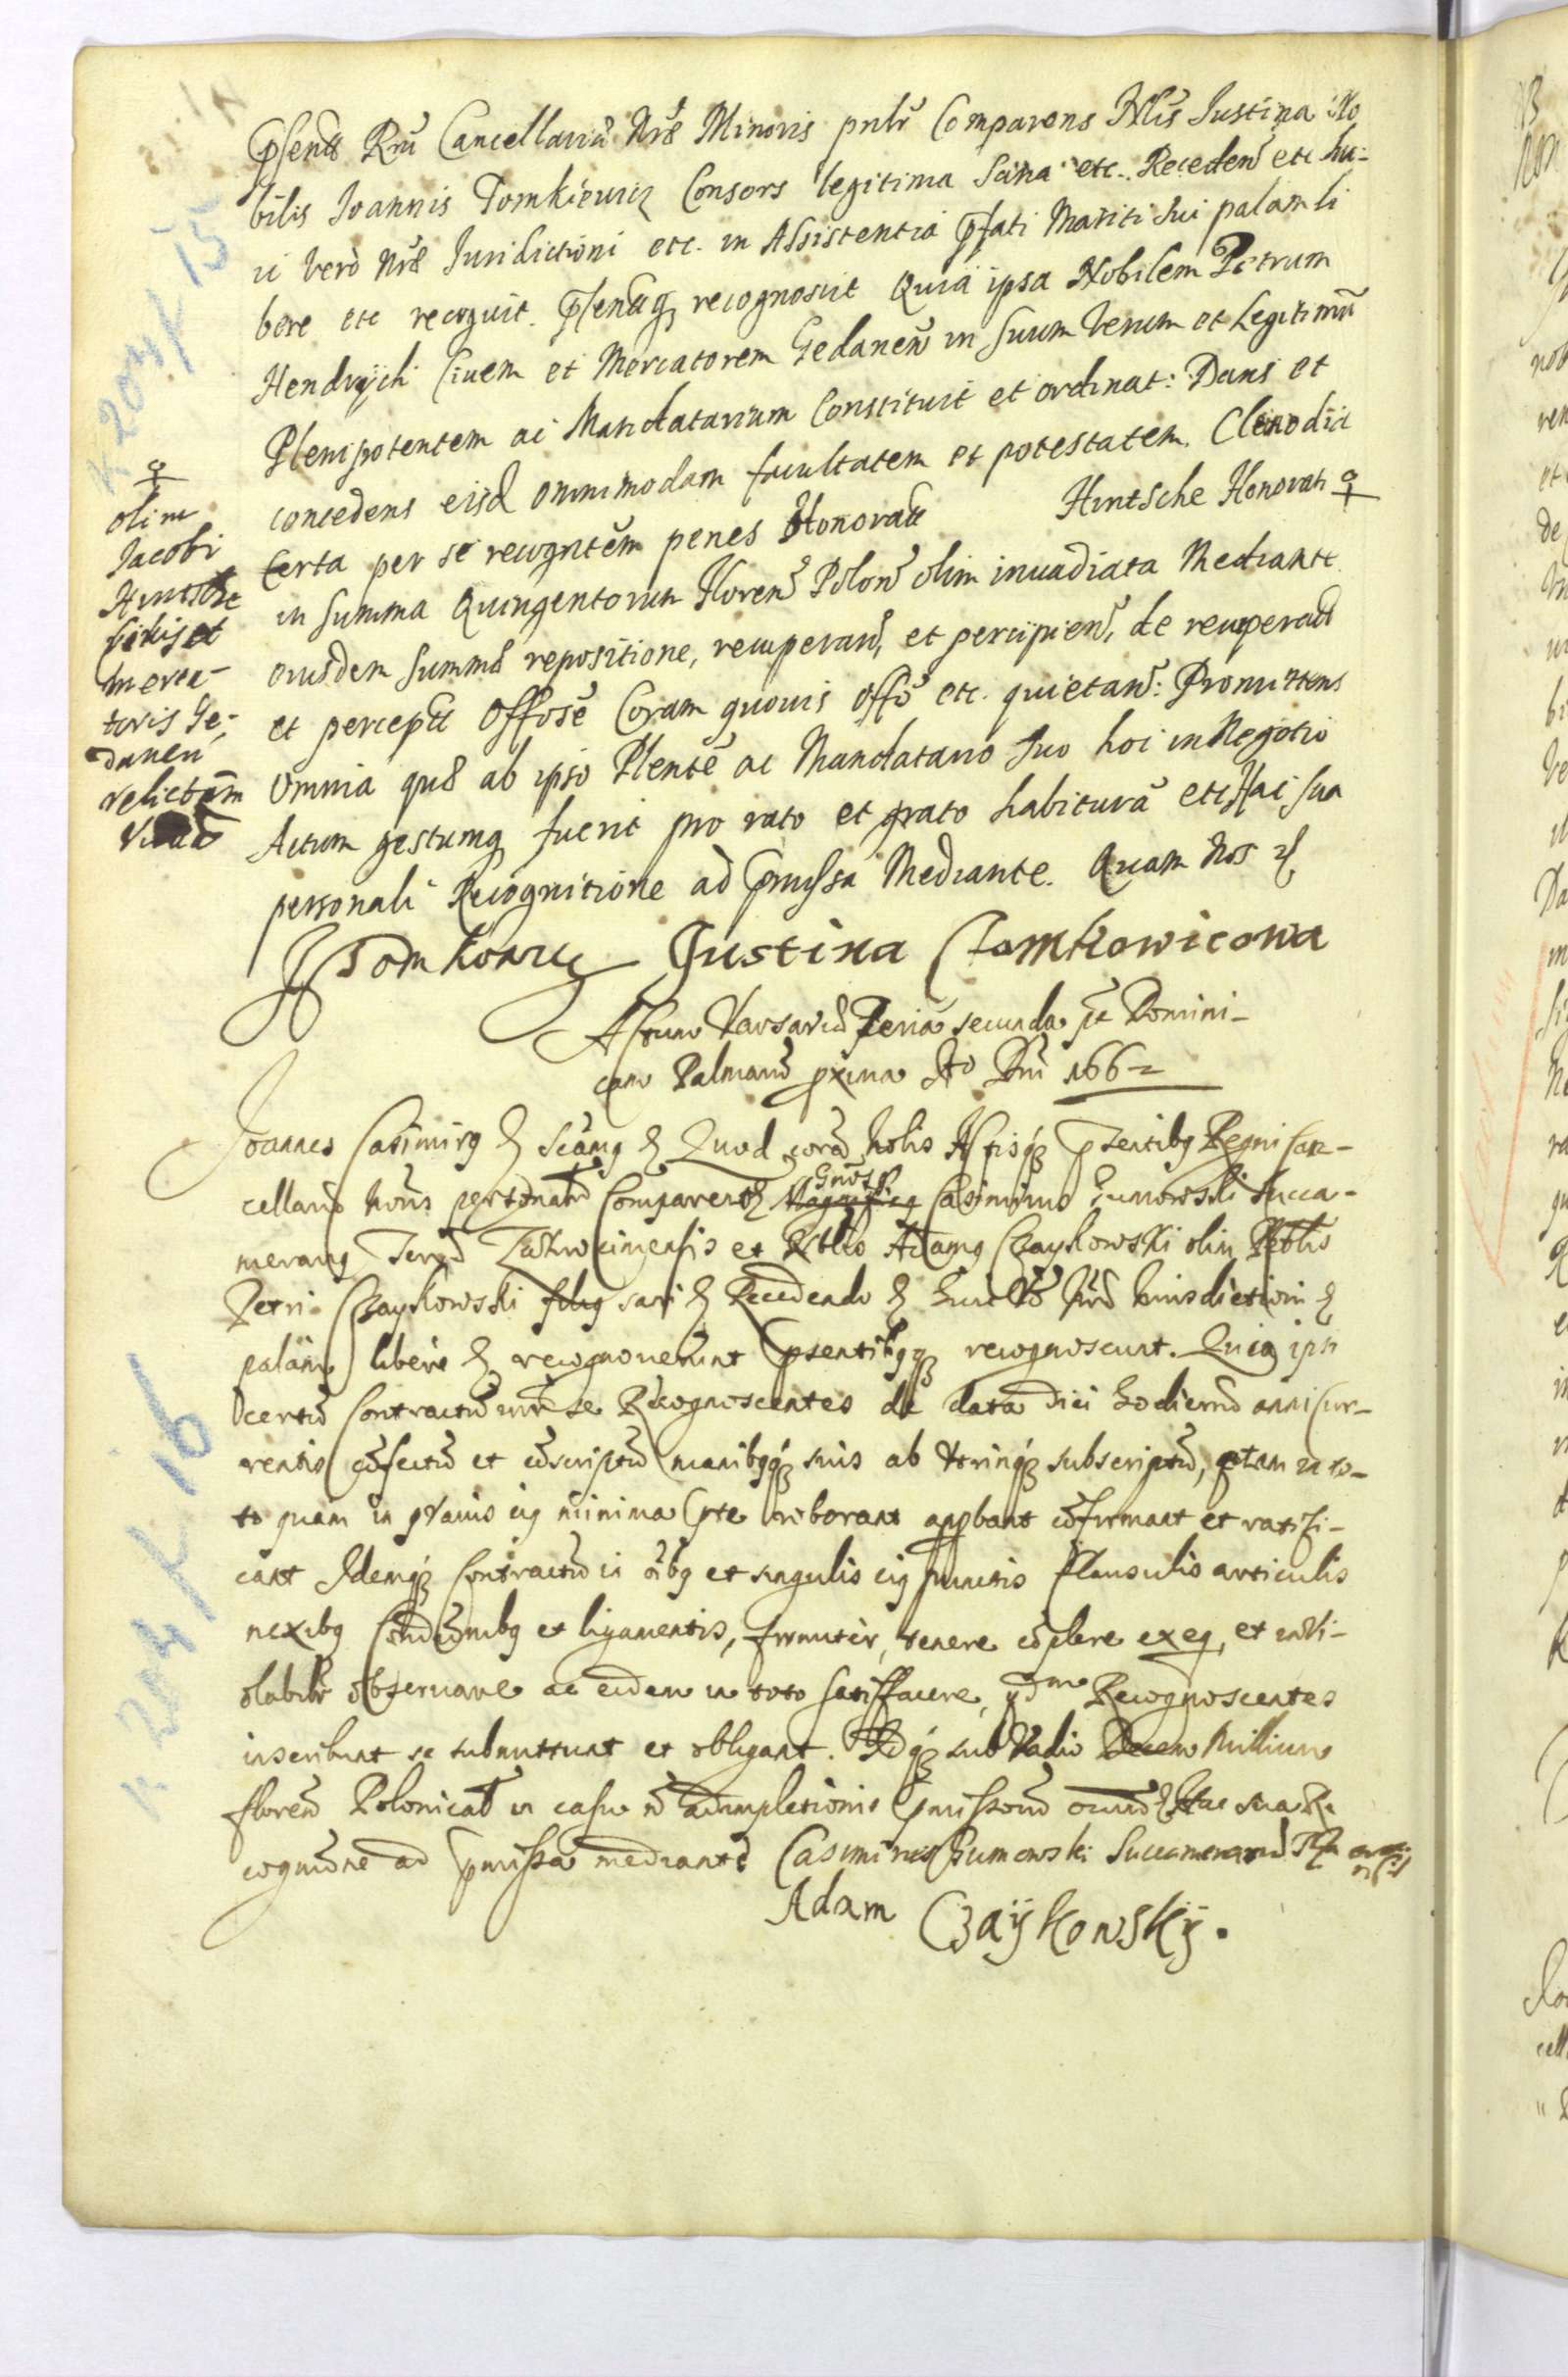 p̄sentᷓ Rnī Cancellariæ Nræ Minoris pnlr̄ Comparens Nl̄is Iustina No
bilis Joannis Tomkiewicz Consors legitima Sana etc. Receden̄ etc hu-
ic vero Nræ Iurisdictioni etc. in Assistentia p̄fati Mariti sui palam li
bere etc recogvit. p̄sentᷓq, recognoscit Quia ipsa Nobilem Petrum
Hendrych Ciuem et Mercatorem Gedanen̄ in suum verum et Legitimū
Plenipotentem ac Mandatarium Constituit et ordinat: Dans et
concedens eisd omnimodam facultatem et potestatem. Clenodia
Certa per se recogntēm penes Honoratᷓ Hintsche Honorati ♀
in summa Quingentorum Floren̄ Polon̄ olim inuadiata Mediante
eiusdem summæ repositione, recuperan̄, et percipien̄, de recuperatᷓ
et perceptᷓ Offosē Coram quouis offō etc. quietan̄: Promittens
Omnia quæ ab ipso Plentē ac Mandatario suo hoc in Negotio
Actum gestumq fuerit pro rato et grato habiturā etc Hac sua
personali Recognitione ad p̄missa Mediante. Quam Nos
♀
olim
Jacobi
Hintsche
Ciuis et
merca-
toris Ge-
danen̄
relictām
Justina Tomkowicowa
Actum Varsaviæ Feria secunda p̄t Domini-
cam Palmarū pxima Ao Dnī 1662
Joannes Casimirg Sc̄amg Quod corā Nobis Actisq p̄sentibg Regni Can-
cellariæ nr̄is personalr̄ Comparentᷓ Magnificg Gnosg Casimirus Gumowski Succa-
merarg et Nblis Adamg Czaykowski olim Nblis
Petri Czaykowski filig sani Recedendo Huic vō Nræ Iurisdictioni
palam libere recognouerunt p̄sentibgq recognoscunt. Quia ipsi
certū Contractū inr̄ se Recognoscentes de data diei hodiernæ anni Cur-
rentis cōfectū et cōscriptū manibgq suis ab utrinq subscriptū, tam in to-
to quam in quauis eig minima pte roborant appbant cōfirmant et ratifi-
cant Idemq Contractū in oībg et singulis eig punctis Clausulis articulis
nexibg Conditionibg et ligamentis, firmiter, tenere cōplere exeq, et invi-
olabilr̄ obseruare ac eidem in toto satisfacere, Recognoscentes
inscribunt se submittunt et obligant. Idq sub Vadio Decem Millium
floren̄ Polonicaᷓ in casu nō adimpletionis p̄missorū Hac sua Re
cognitōne ad p̄missa mediante Casimirus Gumowski Succamerariᷓ
Adam Czaykowskij.
K 204/15
K 204 K 16